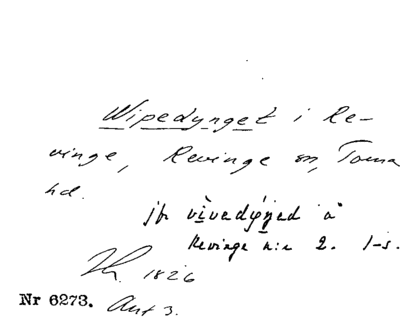 Wipedynget i Re-
vinge, Revinge sn, Torna
hd.
jfr vivedyŋed å
Revinge n:r 2. 1-s.
1826
Nr 6273. Ant 3.